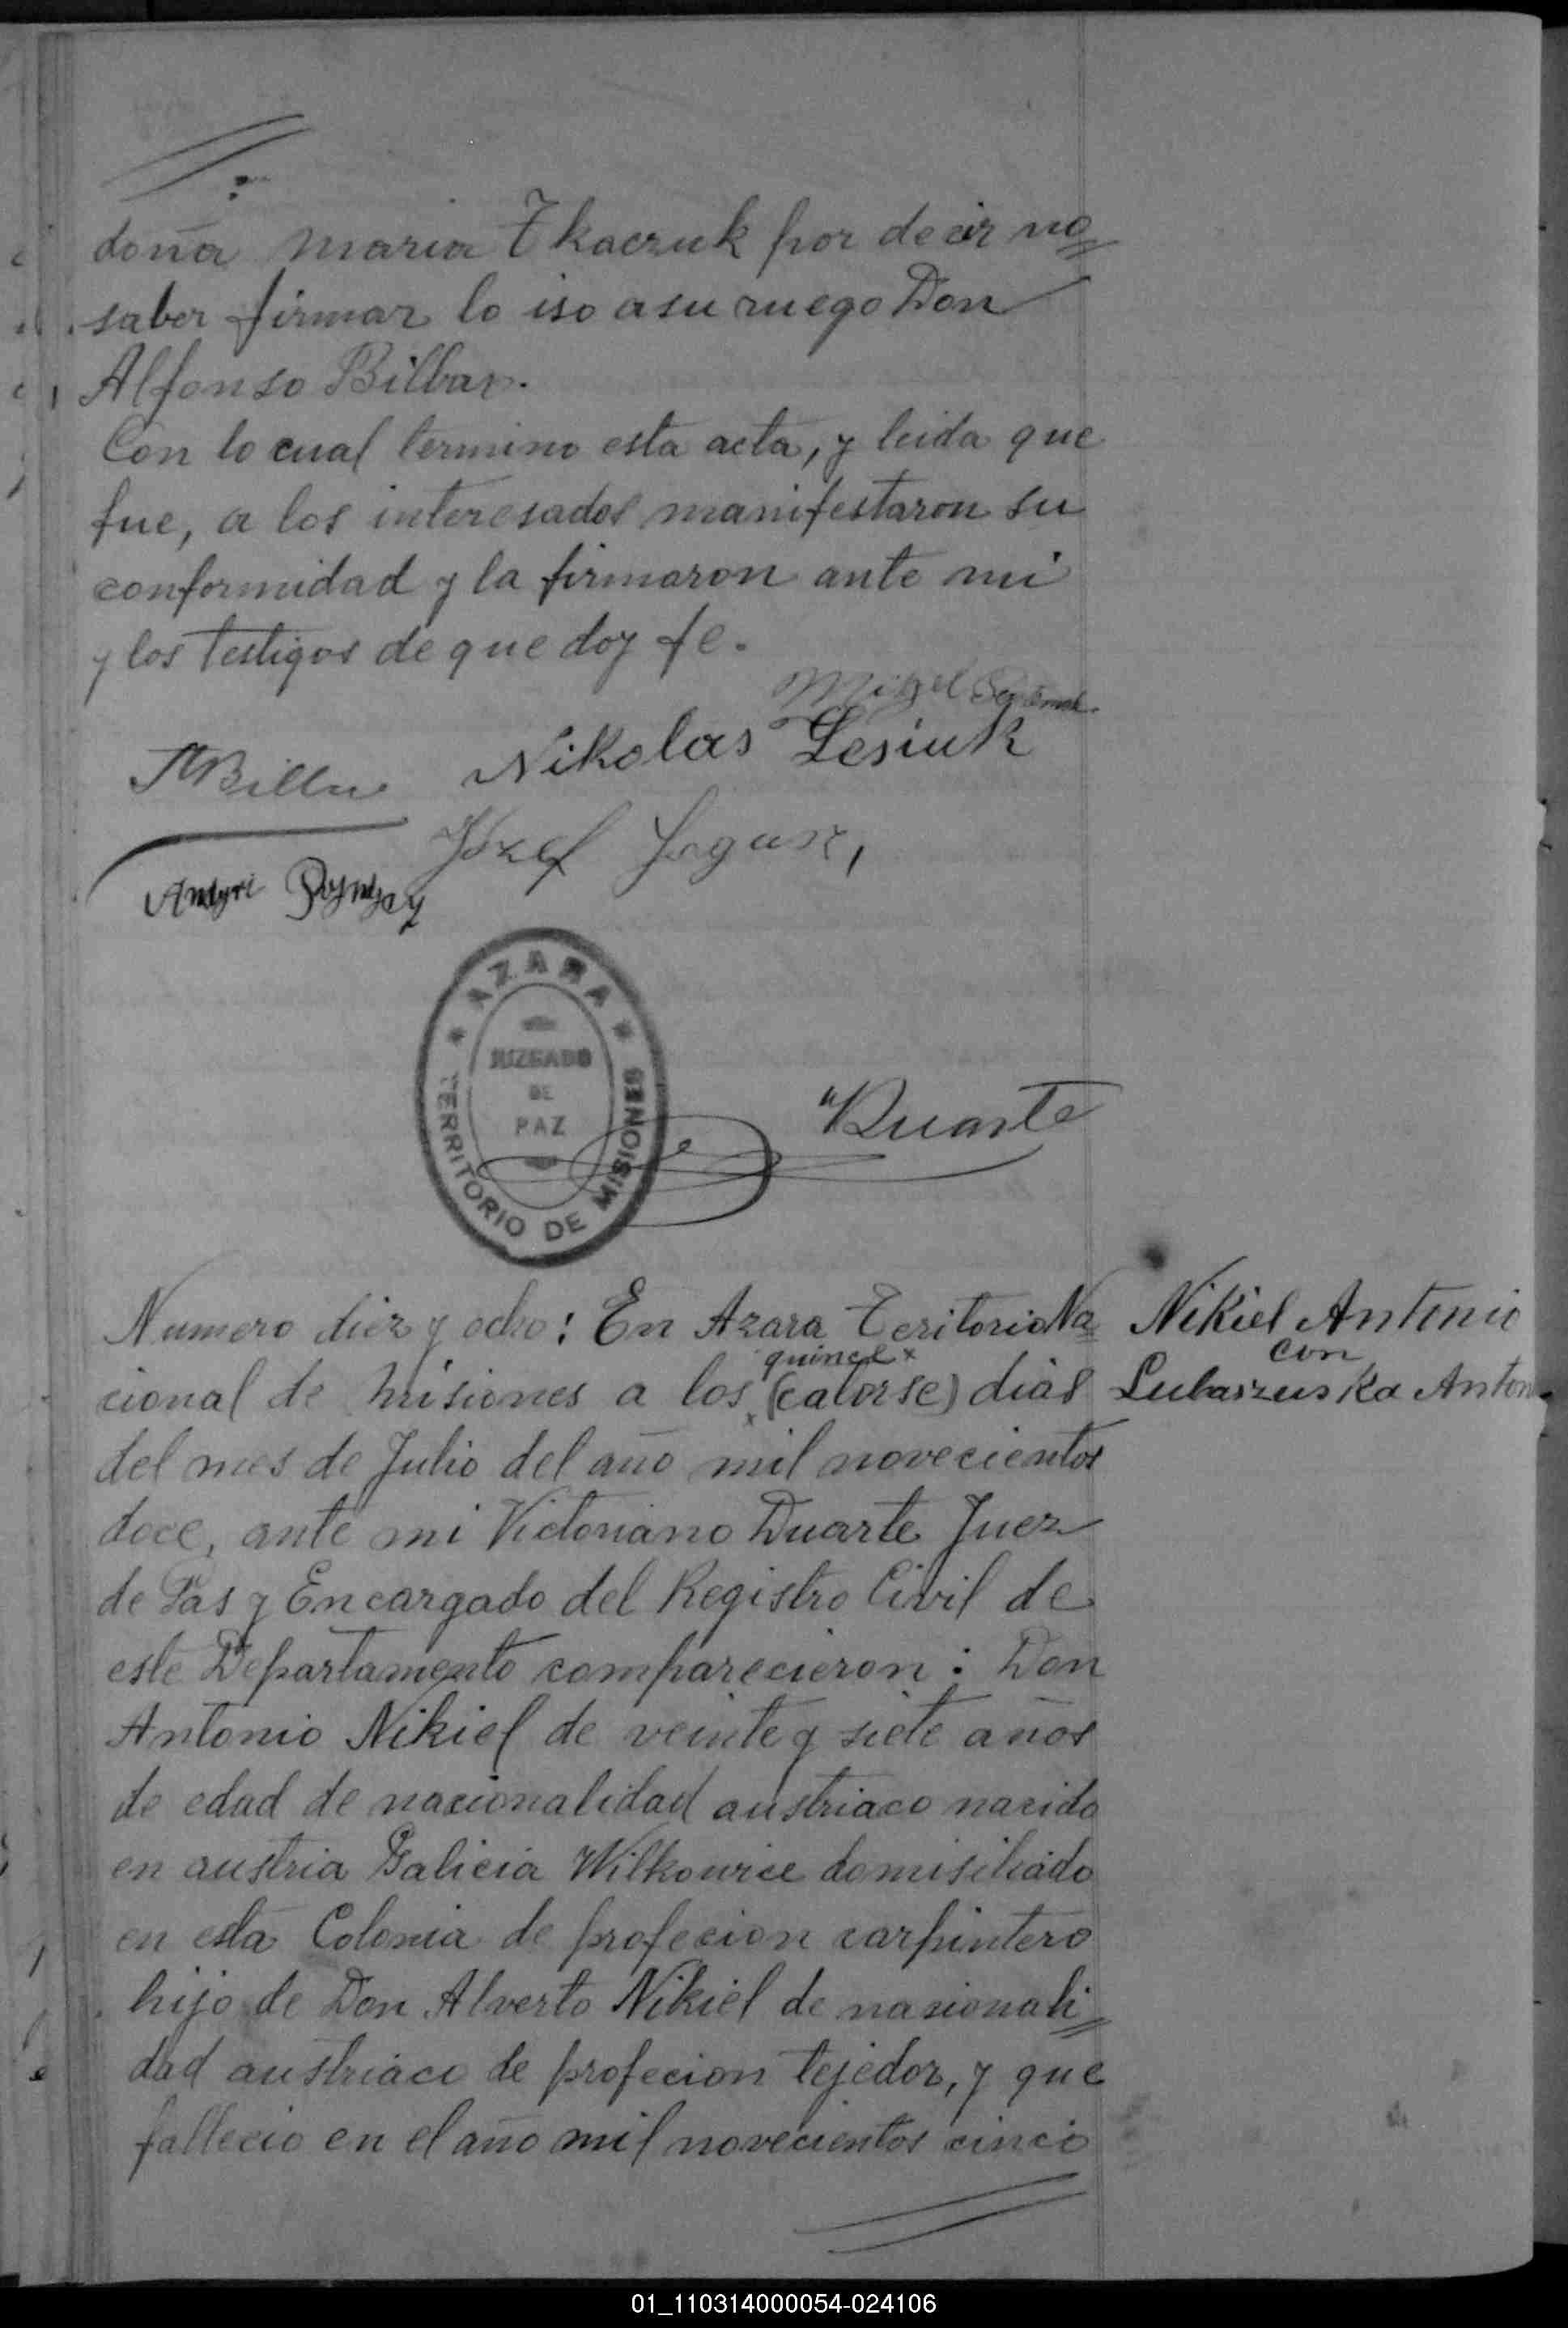 doña maria Tkaczuk por decir no
saber firmar lo iso a su ruego Don
Alfonso Bilbar.
Con lo cual termino esta acta, y leida que
fue, a los interesados manifestaron su
conformidad y la firmaron ante mi
y los testigos de que doy fe.
Nikolas Lesiuk
Józef
AZARA
JUZGADO
DE
PAZ
TERRITORIO DE MISIONES
Duarte
Numero diez y ocho: En Azara Teritorio Na
quince x
cional de misiones a los x (catorse) dias
del mes de Julio del año mil novecientos
doce, ante mi Victoriano Duarte Juez
de Pas y Encargado del Registro Civil de
este Departamento comparecieron: Don
Antonio Nikiel de veinte y siete años
de edad de nacionalidad austriaco nacido
en austria Galicia Wilkowice domisiliado
en esta Colonia de profecion carpintero
hijo de Don Alverto Nikiel de nasionali
dad austriaco de profecion tejedor, y que
fallecio en el año mil novecientos cinco
Nikiel Antonio
con
Lubaszuska Anton
01_110314000054-024106